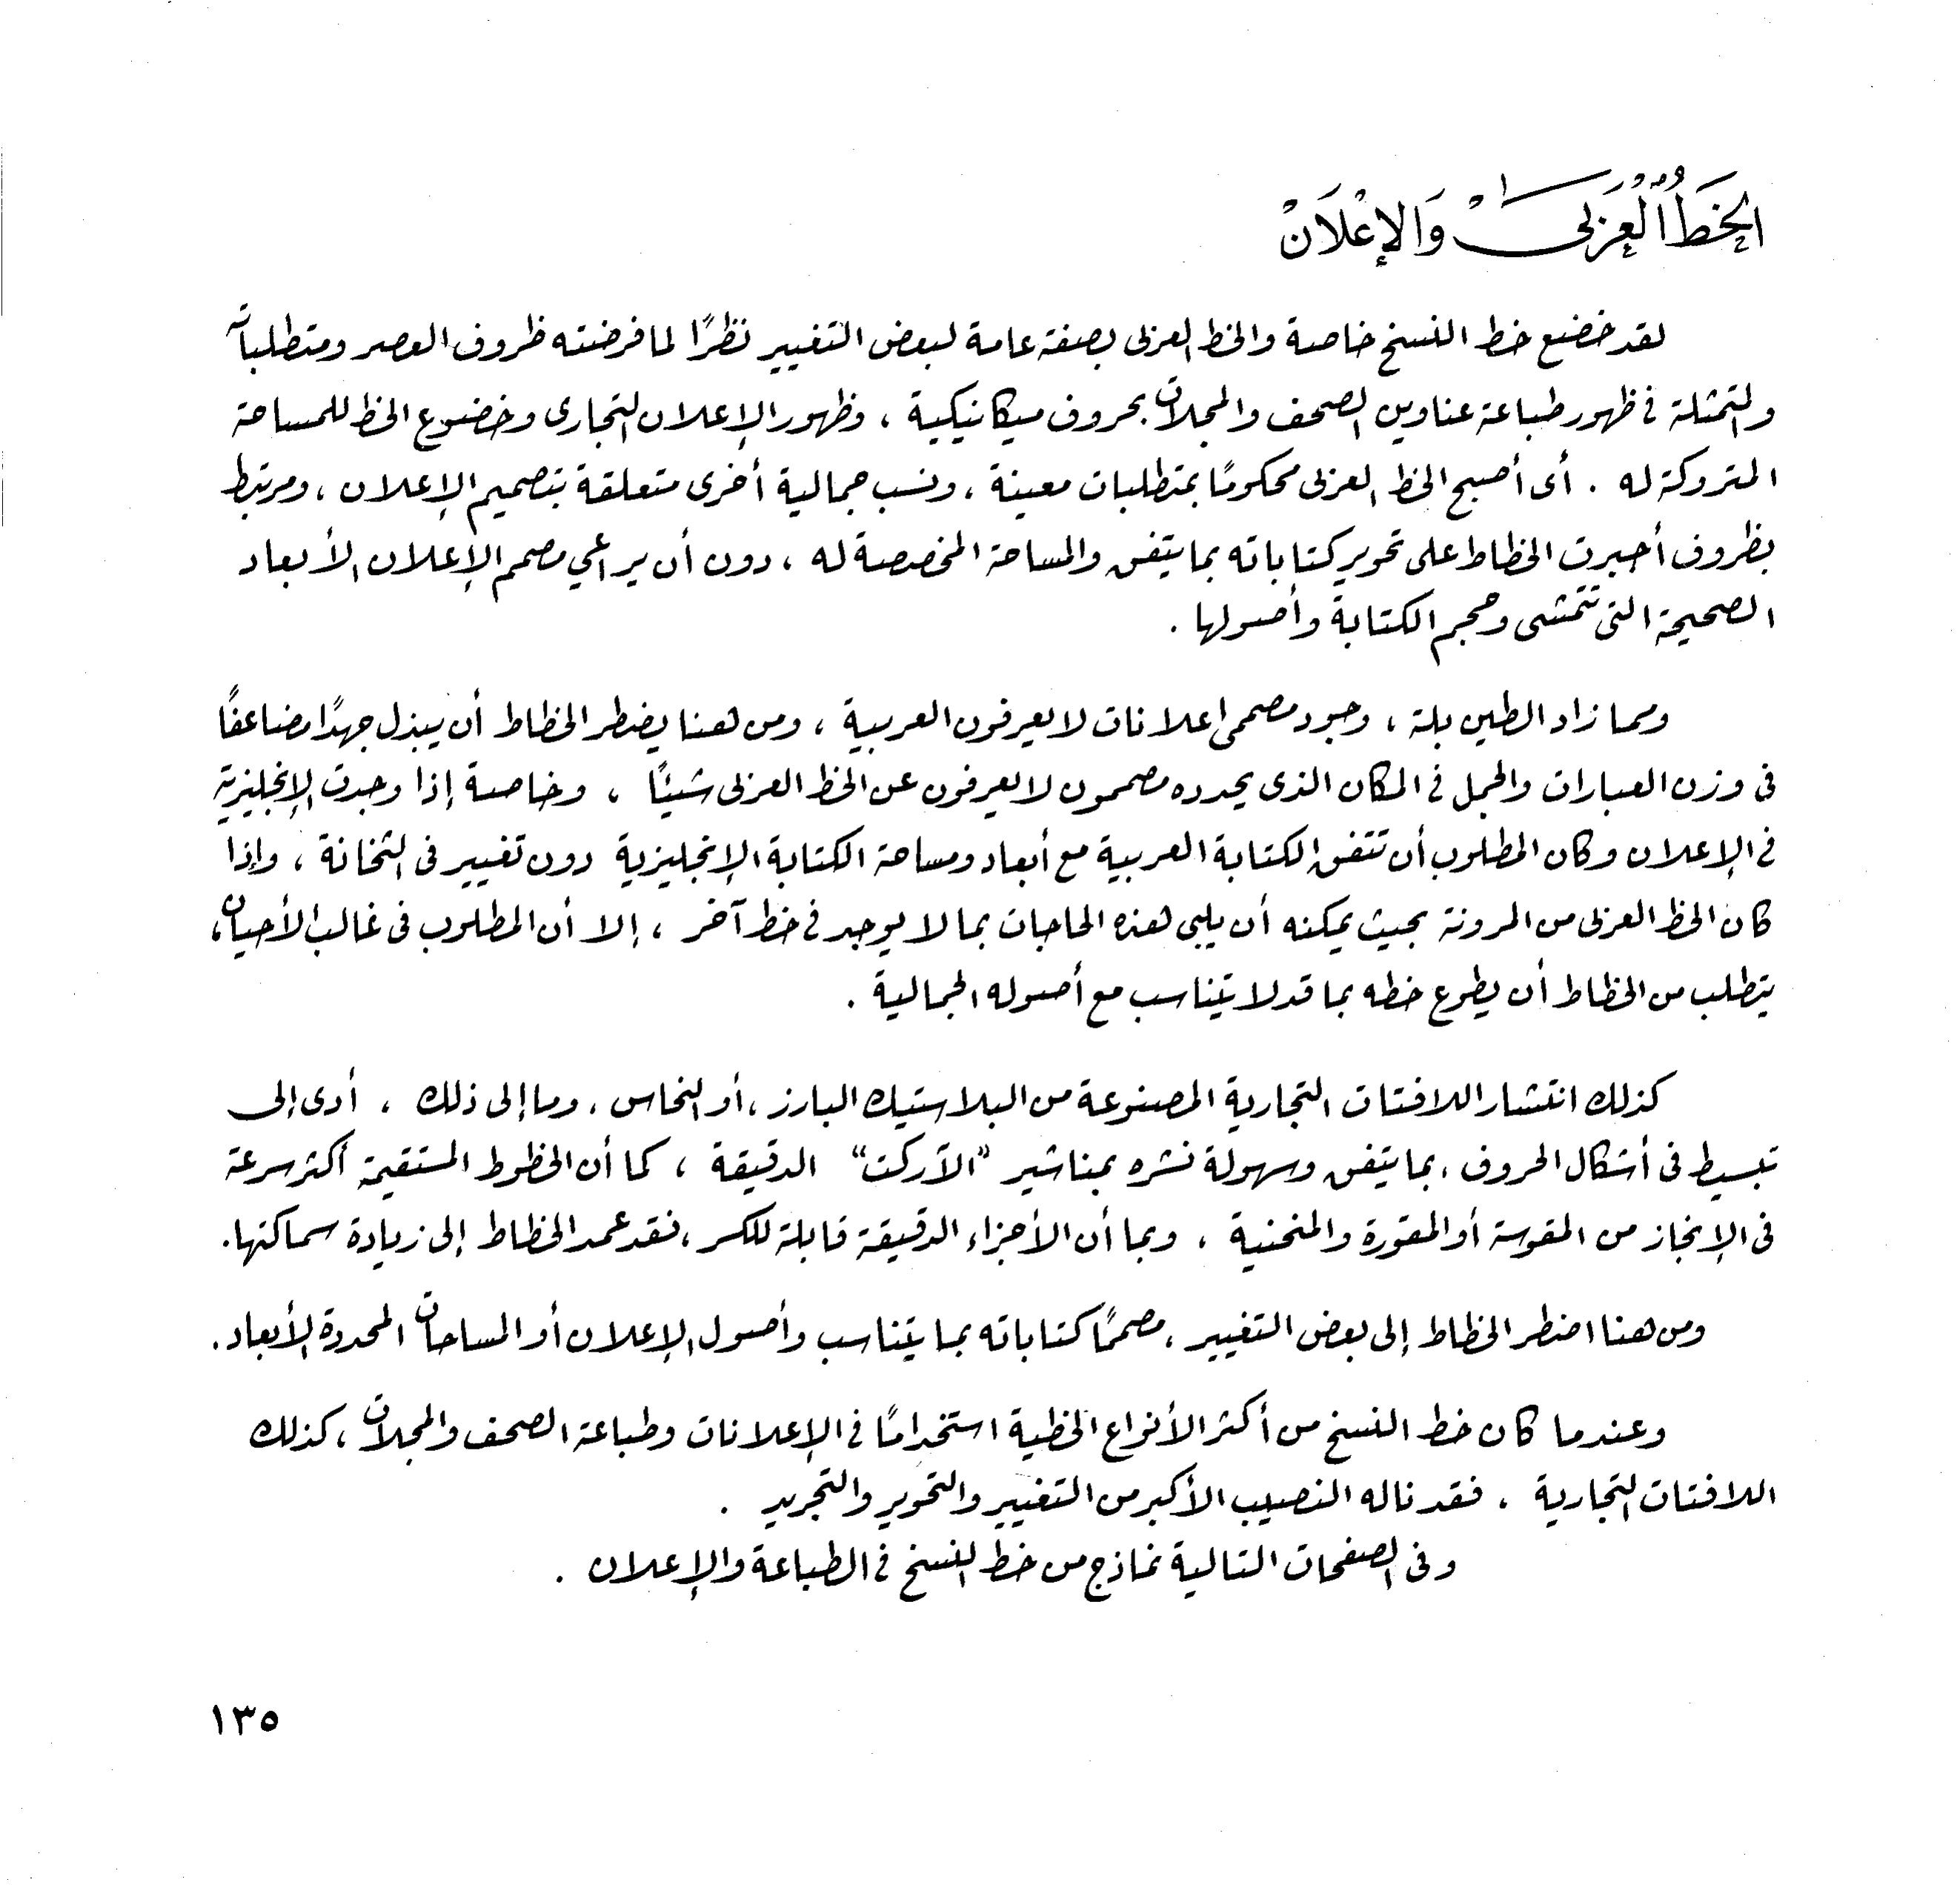 الخَطُّ الْعَرَبي وَالإِعْلَانْ
لقد خضع خط النسخ خاصة والخط العربى بصفة عامة لبعض التغيير نظرًا لما فرضته ظروف العصر ومتطلباته
والمتمثلة فى ظهور طباعة عناوين الصحف والمجلات بحروف ميكانيكية ، وظهور الإعلان التجارى وخضوع الخط للمساحة
المتروكة له . أى أصبح الخط العربى محكومًا بمتطلبات معينة ، ونسب جمالية أخرى متعلقة بتصميم الإعلان ، ومرتبط
بظروف أجبرت الخطاط على تحوير كتاباته بما يتفق والمساحة المخصصة له ، دون أن يراعي مصمم الإعلان الأبعاد
الصحيحة التى تتمشى وحجم الكتابة وأصولها .
ومما زاد الطين بلة ، وجود مصممى اعلانات لا يعرفون العربية ، ومن هنا يضطر الخطاط أن يبذل جهدًا مضاعفًا
فى وزن العبارات والجمل فى المكان الذى يحدده مصممون لا يعرفون عن الخط العربى شيئًا ، وخاصة إذا وجدت الإنجليزية
فى الإعلان وكان المطلوب أن تتفق الكتابة العربية مع أبعاد ومساحة الكتابة الإنجليزية دون تغيير فى الثخانة ، وإذا
كان الخط العربى من المرونة بحيث يمكنه أن يلبى هذه الحاجات بما لا يوجد فى خط آخر ، إلا أن المطلوب فى غالب الأحيان ،
يتطلب من الخطاط أن يطوع خطه بما قد لا يتناسب مع أصوله الجمالية .
كذلك انتشار اللافتات التجارية المصنوعة من البلاستيك البارز ، أو النحاس ، وما إلى ذلك ، أدى إلى
تبسيط فى أشكال الحروف ، بما يتفق وسهولة نشره بمناشير "الآركت" الدقيقة ، كما أن الخطوط المستقيمة أكثر سرعة
فى الإنجاز من المقوسة أو المقورة والمنحنية ، وبما أن الأجزاء الدقيقة قابلة للكسر ، فقد عمد الخطاط إلى زيادة سماكتها .
ومن هنا اضطر الخطاط إلى بعض التغيير ، مصممًا كتاباته بما يتناسب وأصول الإعلان أو المساحات المحددة الأبعاد .
وعندما كان خط النسخ من أكثر الأنواع الخطية استخدامًا فى الإعلانات وطباعة الصحف والمجلات ، كذلك
اللافتات التجارية ، فقد ناله النصيب الأكبر من التغيير والتحوير والتجريد .
وفى الصفحات التالية نماذج من خط النسخ فى الطباعة والإعلان .
١٣٥